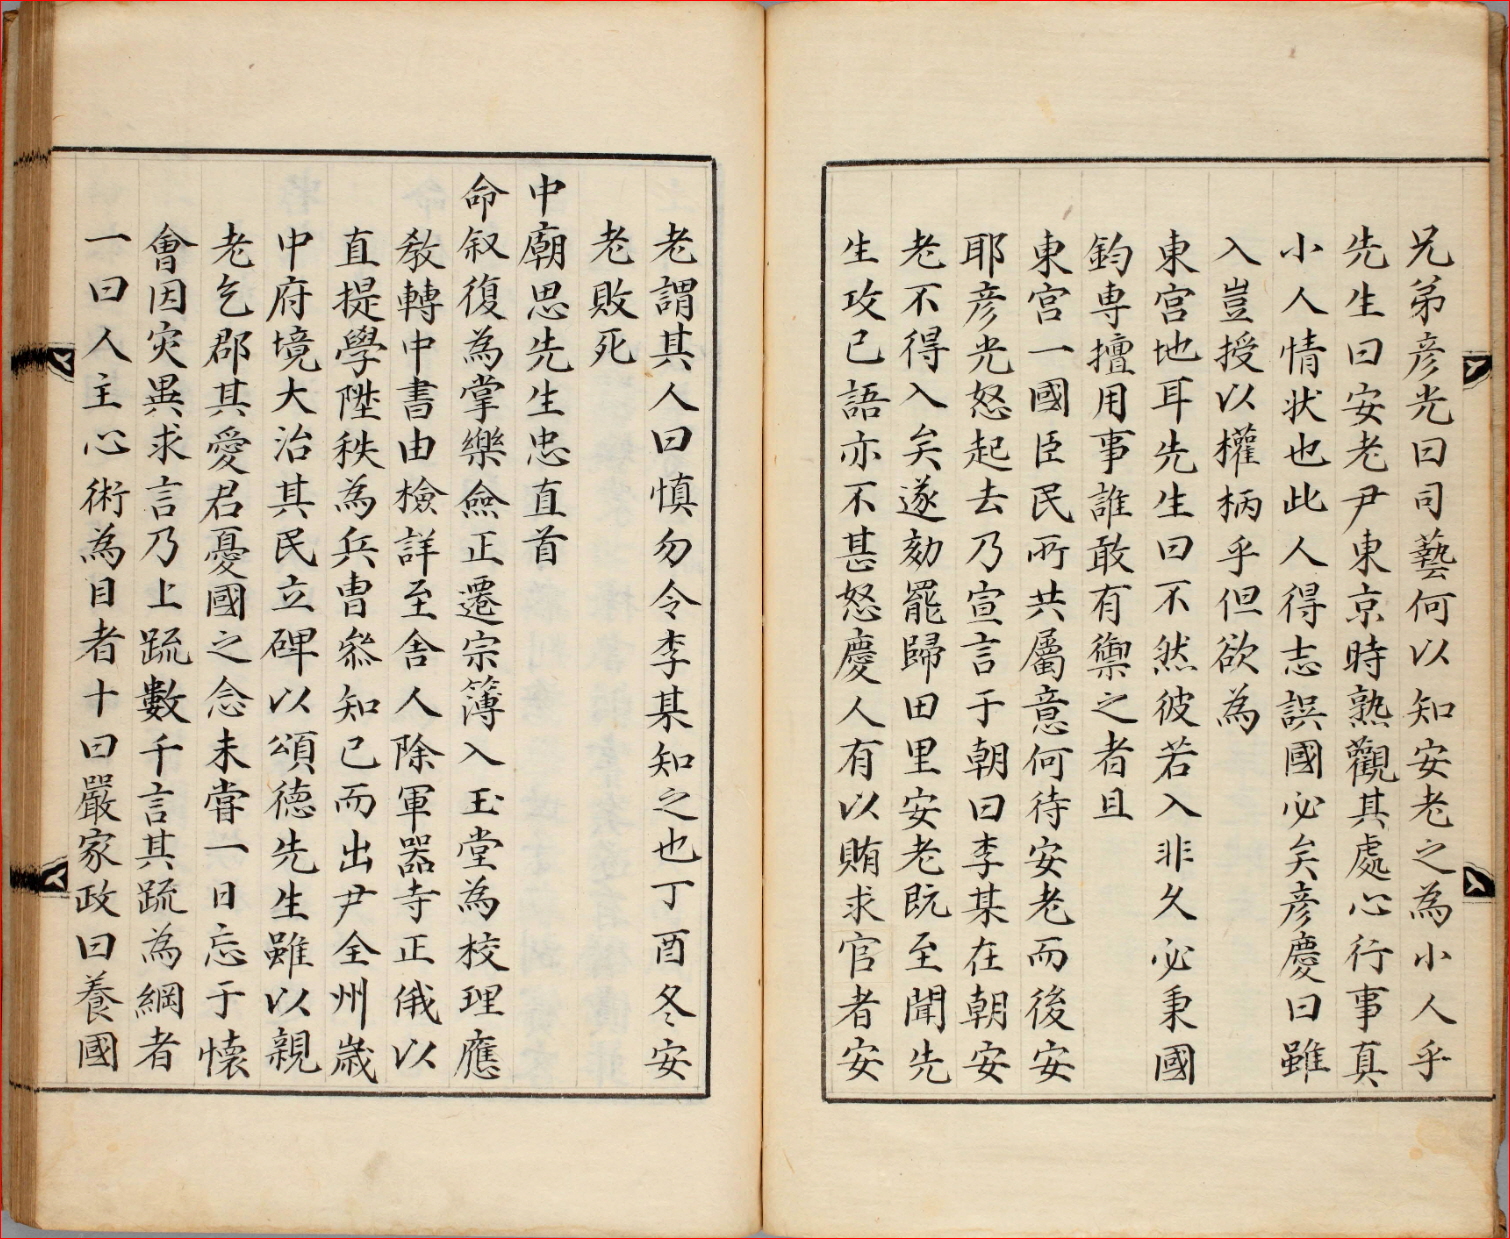 兄弟彦光曰司藝何以知安老之為小人乎
先生曰安老尹東京時熟觀其處心行事真
小人情状也此人得志誤國必矣彦慶曰雖
入豈授以權柄乎但欲為
東宮地耳先生曰不然彼若入非久必秉國
鈞専擅用事誰敢有禦之者且
東宮一國臣民所共屬意何待安老而後安
耶彦光怒起去乃宣言于朝曰李某在朝安
老不得入矣遂劾罷歸田里安老既至聞先
生攻已語亦不甚怒慶人有以賄求官者安
老謂其人曰慎勿令李某知之也丁酉冬安
老敗死
中廟思先生忠直首
命叙復為掌樂僉正遷宗簿入玉堂為校理應
敎轉中書由檢詳至舎人除軍器寺正俄以
直提學陞秩為兵曺叅知已而出尹全州歳
中府境大治其民立碑以頌德先生雖以親
老乞郡其愛君憂國之念未甞一日忘于懐
會因灾異求言乃上疏數千言其疏為綱者
一曰人主心術為目者十曰嚴家政曰養國